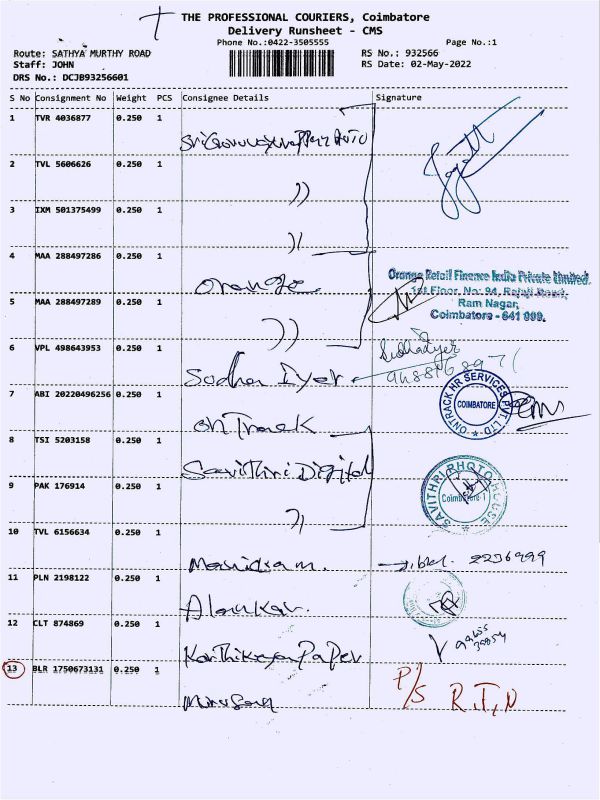 THE PROFESSIONAL COURIERS, Coimbatore
Delivery Runsheet - CMS
Phone No.:0422-3505555
Page No.:1
Route: SATHYA MURTHY ROAD
RS No.: 932566
Staff: JOHN
RS Date: 02-May-2022
DRS No.: DCJB93256601
S No Consignment No Weight PCS Consignee Details Signature
1 TVR 4036877 0.250 1
2 TVL 5606626 0.250 1
))
3 IXM 501375499 0.250 1
))
4 MAA 288497286 0.250 1 Orange
Orange Retail Finance India Private Limited.
1st Floor, No: 94, Rajaji Road,
Ram Nagar,
Coimbatore - 641 009.
5 MAA 288497289 0.250 1
))
6 VPL 498643953 0.250 1 Sudha Iyer
7 ABI 20220496256 0.250 1 On Track
ONTRACK HR SERVICES PVT. LTD
COIMBATORE
8 TSI 5203158 0.250 1 Savithri Digital
SAVITHRI PHOTO HOUSE
Coimbatore-1
9 PAK 176914 0.250 1
))
10 TVL 6156634 0.250 1 2236999
11 PLN 2198122 0.250 1 Alankar.
12 CLT 874869 0.250 1 Karthikeyan Paper
13 BLR 1750673131 0.250 1
P/S R.T.N